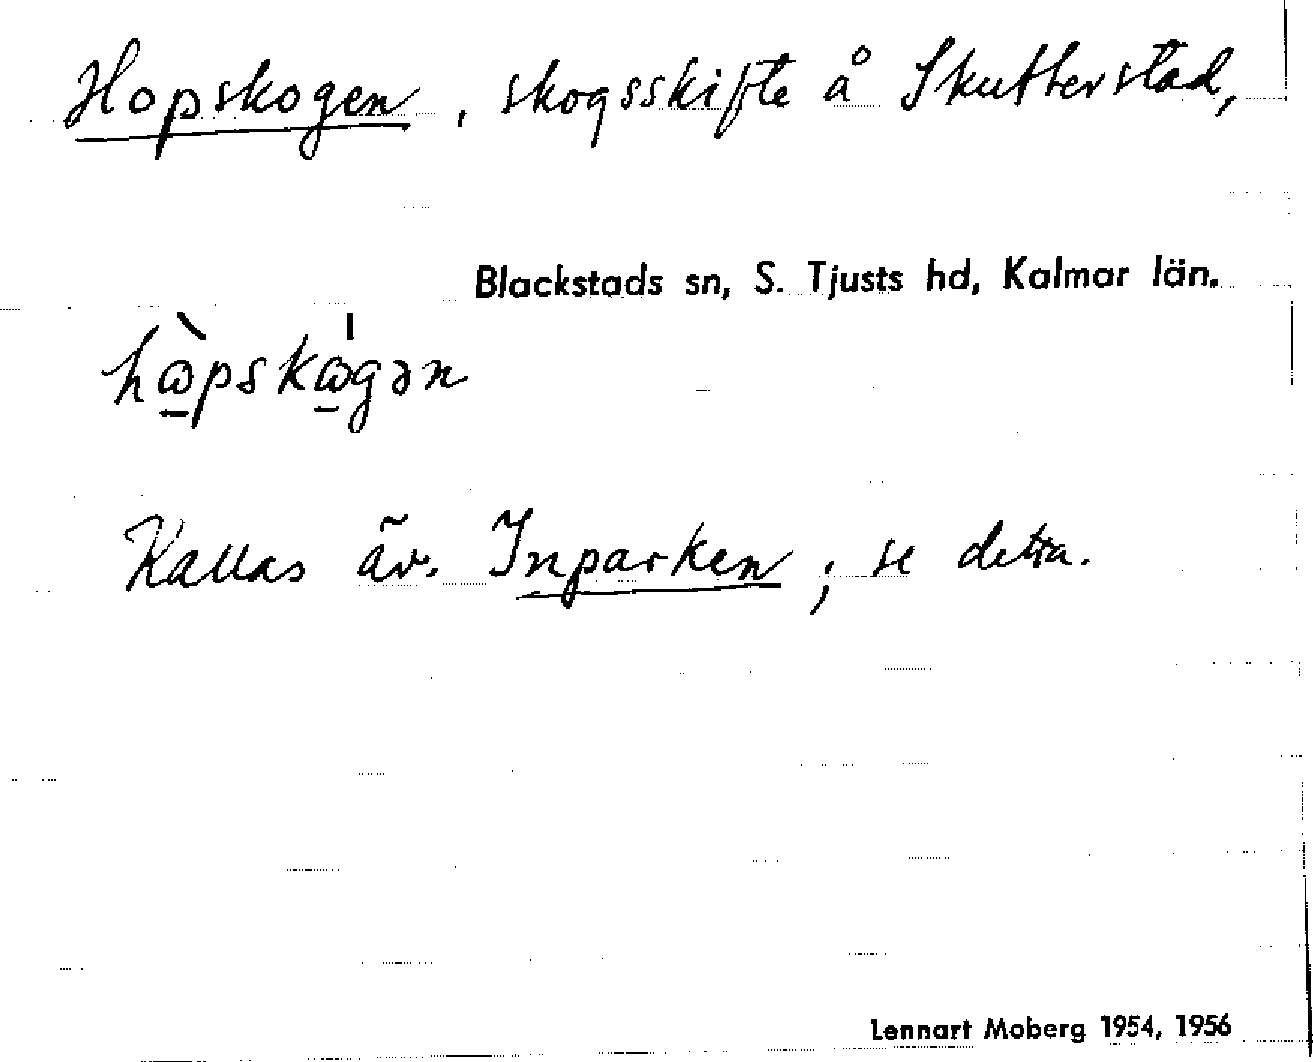 Hopskogen, skogsskifte å Skutterstad,
Blackstads sn, S. Tjusts hd, Kalmar län.
hὼ̲pskώ̲gən
Kallas äv. Inparken; se detta.
Lennart Moberg 1954, 1956